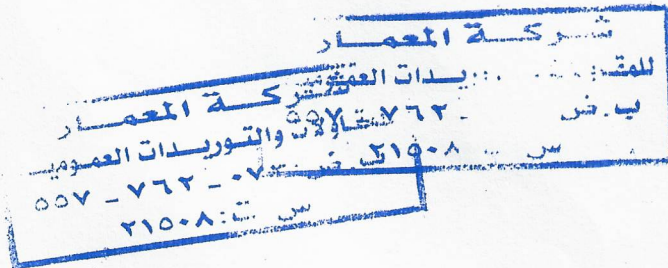 شركة المعمار
يدات العمو
ب.ض ٧٦٢ - ٥٥٧
س ٢١٥٠٨
شركة المعمار
والتوريدات العموميـ
ض ٠٧ - ٧٦٢ - ٥٥٧
س ت: ٢١٥٠٨